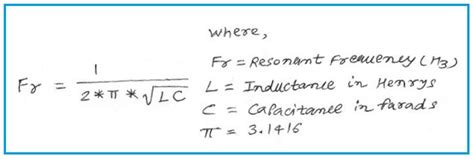 where,
Fr = Resonant Frequency (Hz)
Fr = 1 / 2 * π * √LC
L = Inductance in Henrys
C = Capacitance in farads
π = 3.1416